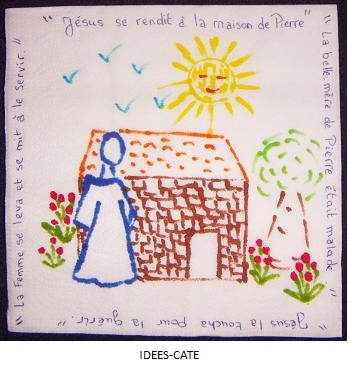 " Jésus se rendit à la maison de Pierre"
" La belle-mère de Pierre était malade
" Jésus la toucha pour la guérir."
" La Femme se leva et se mit à le servir. "
IDEES-CATE